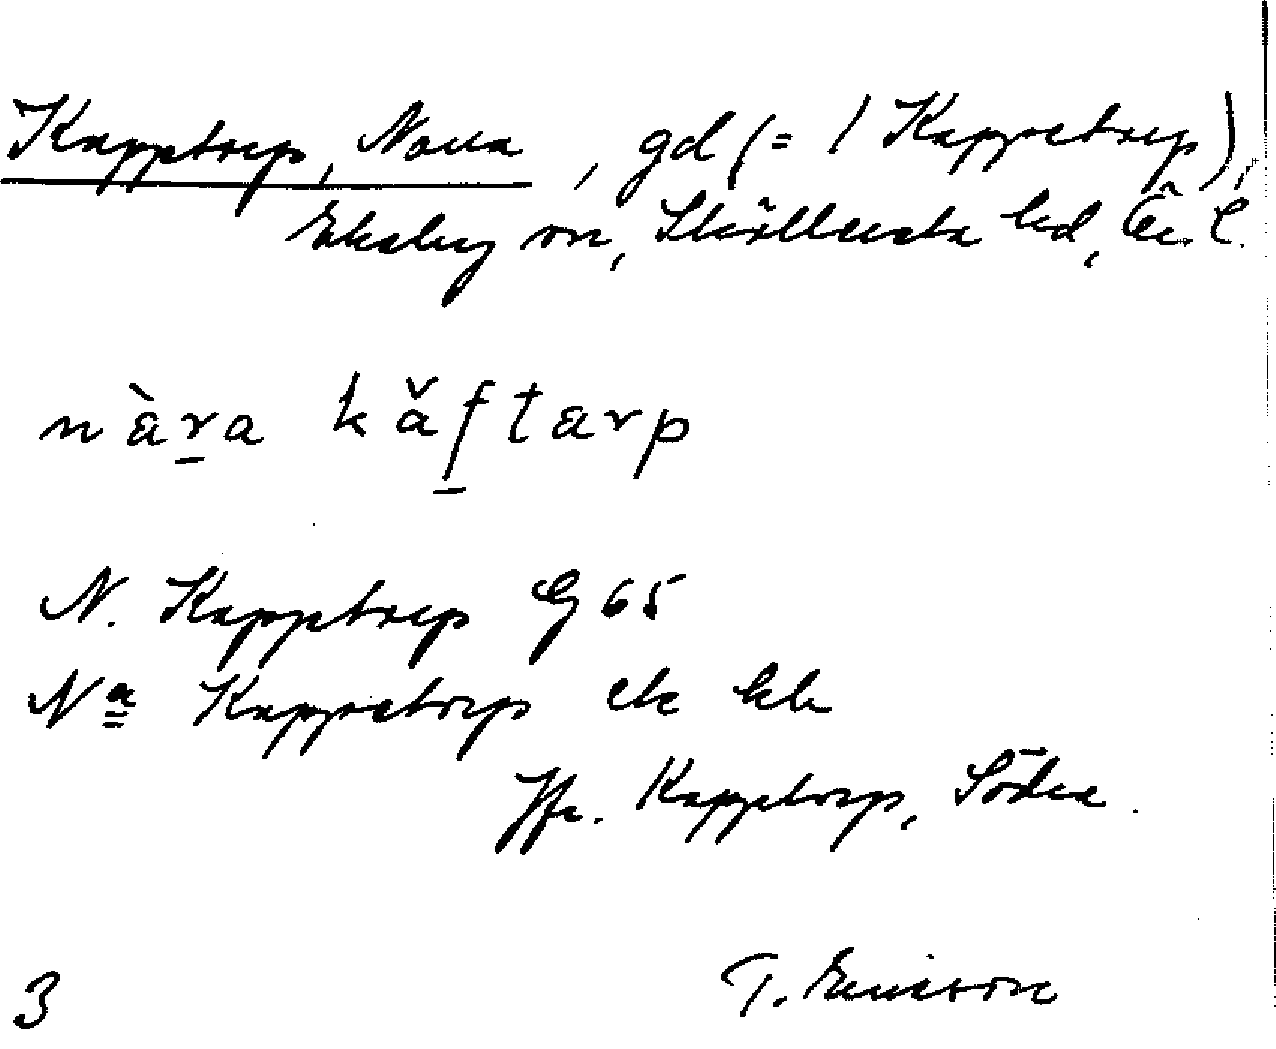 Kapptorp, Norra, gd (= 1 Kappetorp),
Ekeby sn, Sköllersta hd, Ör. l.
nàra kăftarp
N. Kapptorp G 65
Na Kappetorp ek kb
Jfr. Kapptorp, Södra.
3 T. Ericsson